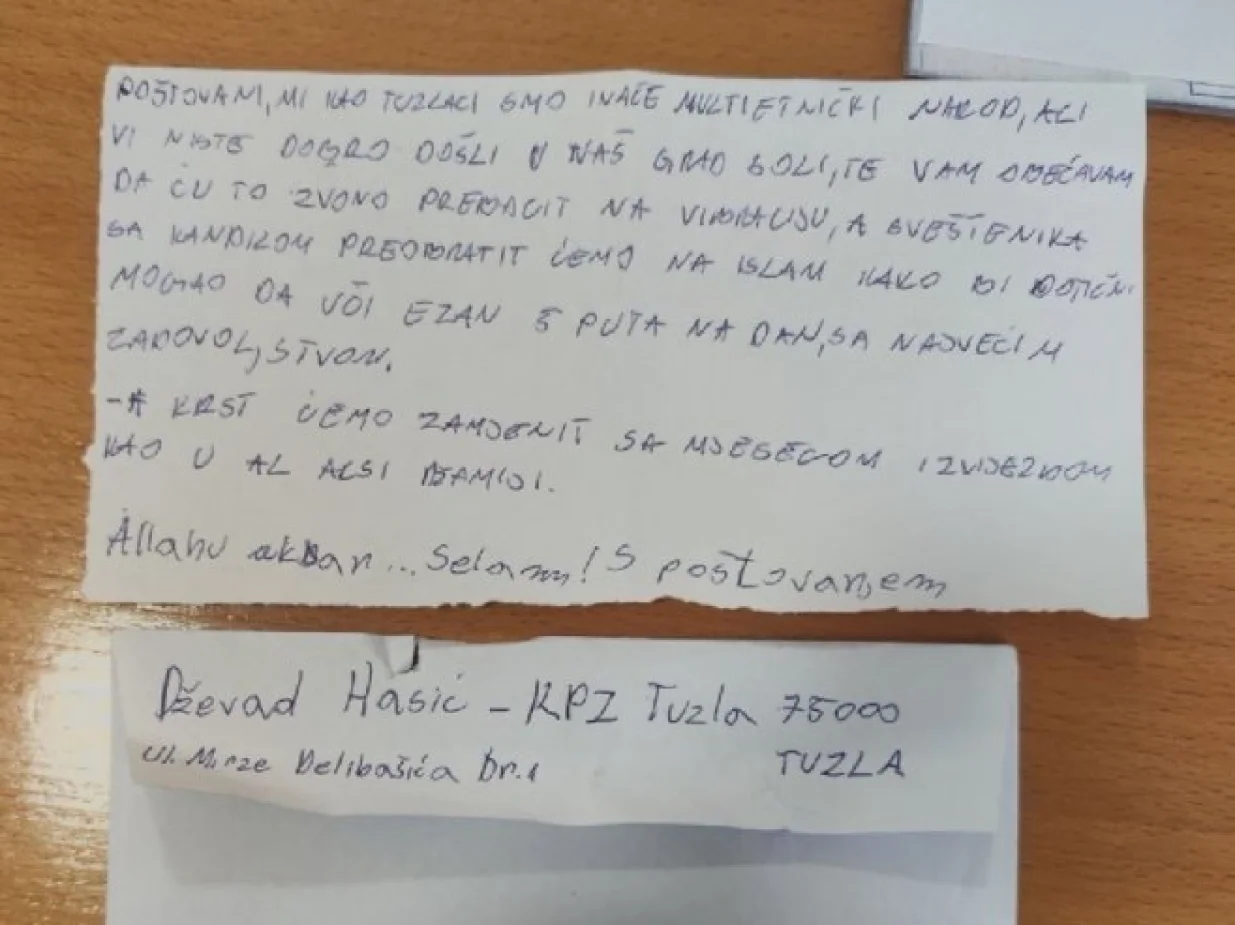 POŠTOVANI, MI KAO TUZLACI SMO INAČE MULTIETNIČKI NAROD, ALI
VI NISTE DOBRO DOŠLI U NAŠ GRAD SOLI, TE VAM OBEĆAVAM
DA ĆU TO ZVONO PREBACIT NA VIBRACIJU, A SVEŠTENIKA
SA KANDILOM PREOBRATIT ĆEMO NA ISLAM KAKO BI DOTIČNI
MOGAO DA UČI EZAN 5 PUTA NA DAN, SA NAJVEĆIM
ZADOVOLJSTVOM.
-A KRST ĆEMO ZAMJENIT SA MJESECOM I ZVIJEZDOM
KAO U AL AKSI DŽAMIJI.
Allahu akbar... Selam! S poštovanjem
Dževad Hasić - KPZ Tuzla 75000
Ul. Mirze Delibašića br. 1 TUZLA